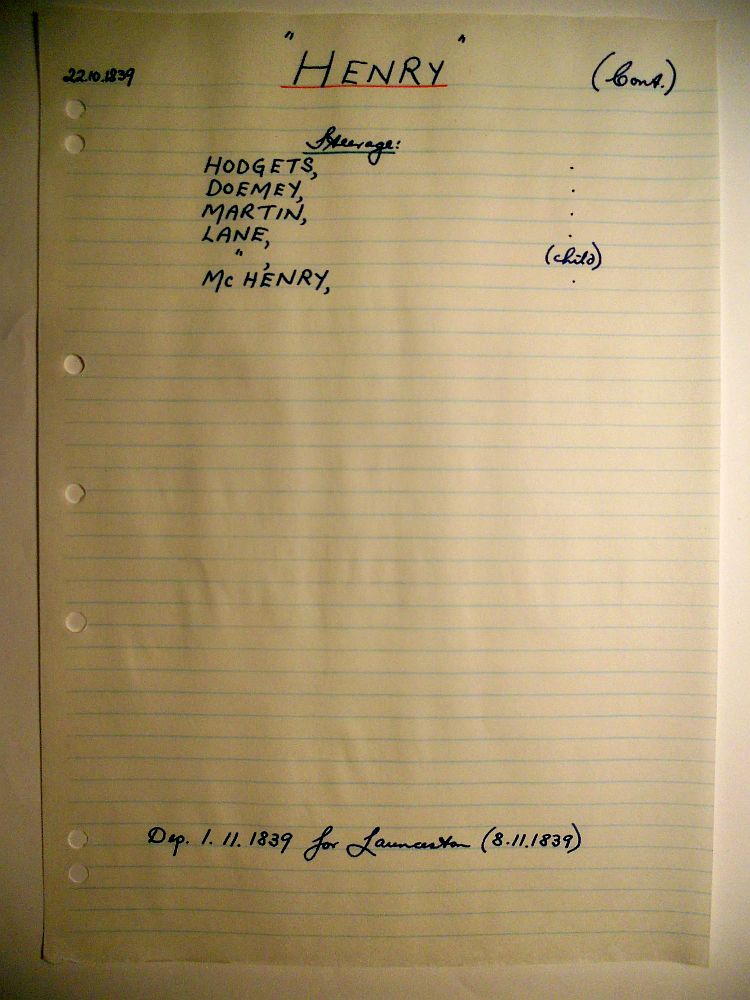 22.10.1839 "HENRY" (Cont.)
Steerage:
HODGETS, .
DOEMEY, .
MARTIN, .
LANE, .
" , (child)
Mc HENRY, .
Dep. 1.11.1839 for Launceston (8.11.1839)